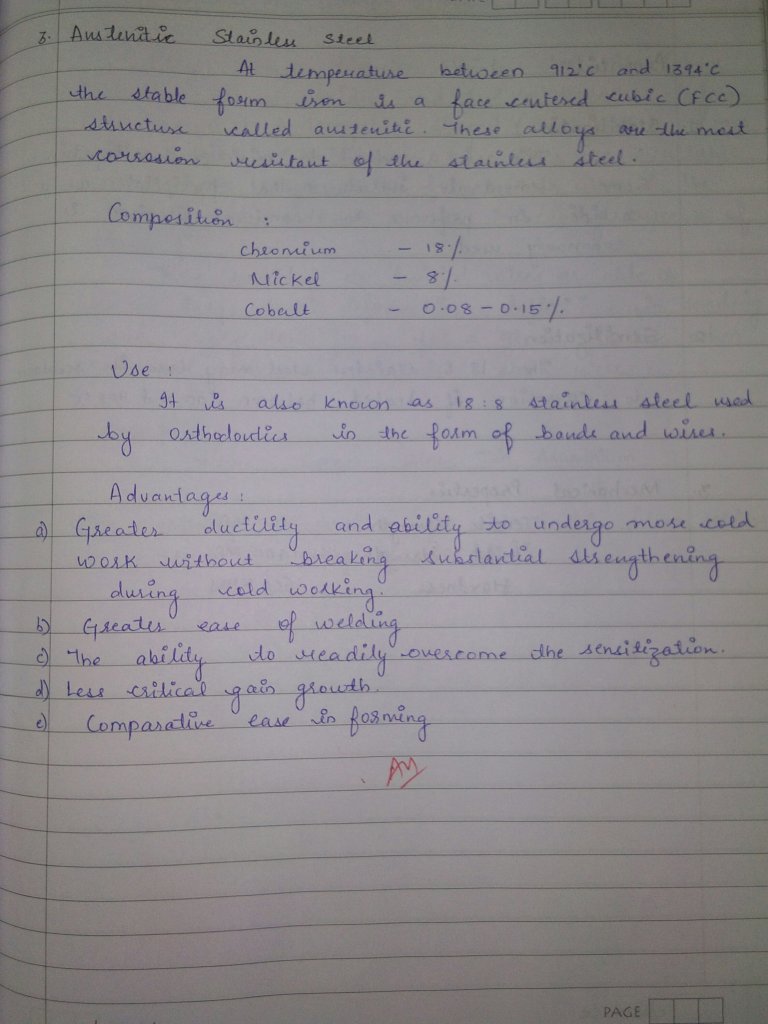 3. Austenitic Stainless Steel
At temperature between 912°C and 1394°C
the stable form iron is a face centered cubic (FCC)
structure called austenitic. These alloys are the most
corrosion resistant of the stainless steel.
Composition :
Chromium – 18%.
Nickel – 8%.
Cobalt – 0.08 – 0.15%.
Use :
It is also known as 18:8 stainless steel used
by orthodontics in the form of bands and wires.
Advantages :
a) Greater ductility and ability to undergo more cold
work without breaking substantial strengthening
during cold working.
b) Greater ease of welding
c) The ability to readily overcome the sensitization.
d) Less critical gain growth.
e) Comparative ease in forming
PAGE